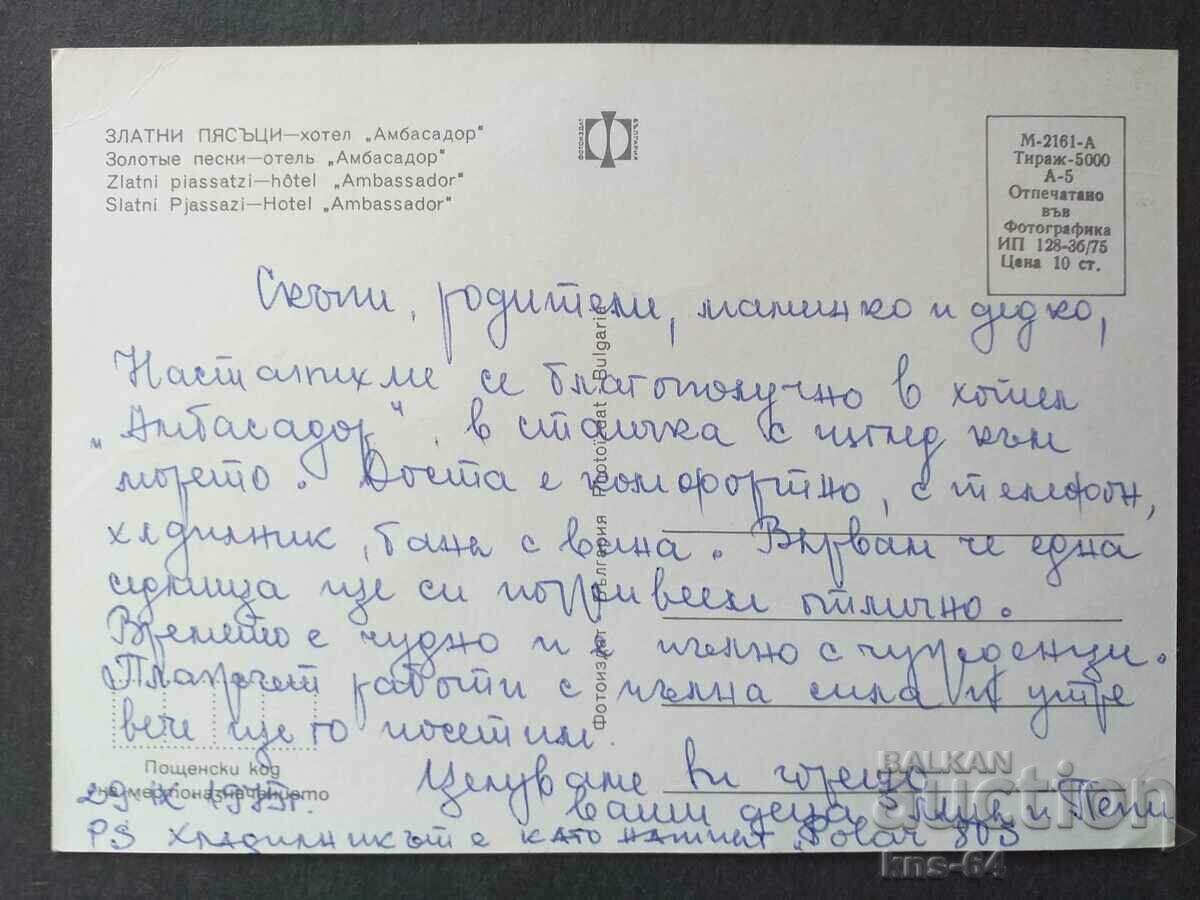 ЗЛАТНИ ПЯСЪЦИ—хотел „Амбасадор"
Золотые пески—отель „Амбасадор"
Zlatni piassatzi—hôtel „Ambassador"
Slatni Pjassazi—Hotel „Ambassador"
ФОТОИЗДАТ
БЪЛГАРИЯ
М-2161-А
Тираж-5000
А-5
Отпечатано
във
Фотографика
ИП 128-36/75
Цена 10 ст.
Скъпи, родители, маминко и дядко,
Настанихме се благополучно в хотел
„Амбасадор", в стаичка с изглед към
морето. Доста е комфортно, с телефон,
хладилник, баня с вана. Вярвам че една
седмица ще си поживеем отлично.
Времето е чудно и е пълно с чужденци.
работи с пълна сила и утре
вече ще го посетим.
Целуваме ви горещо
ваши деца и Пепи
29.IX
PS Хладилникът е като нашият
Фотоиздат България Photoizdat Bulgarie
Пощенски код
на местоназначението
BALKAN
auction
kns-64